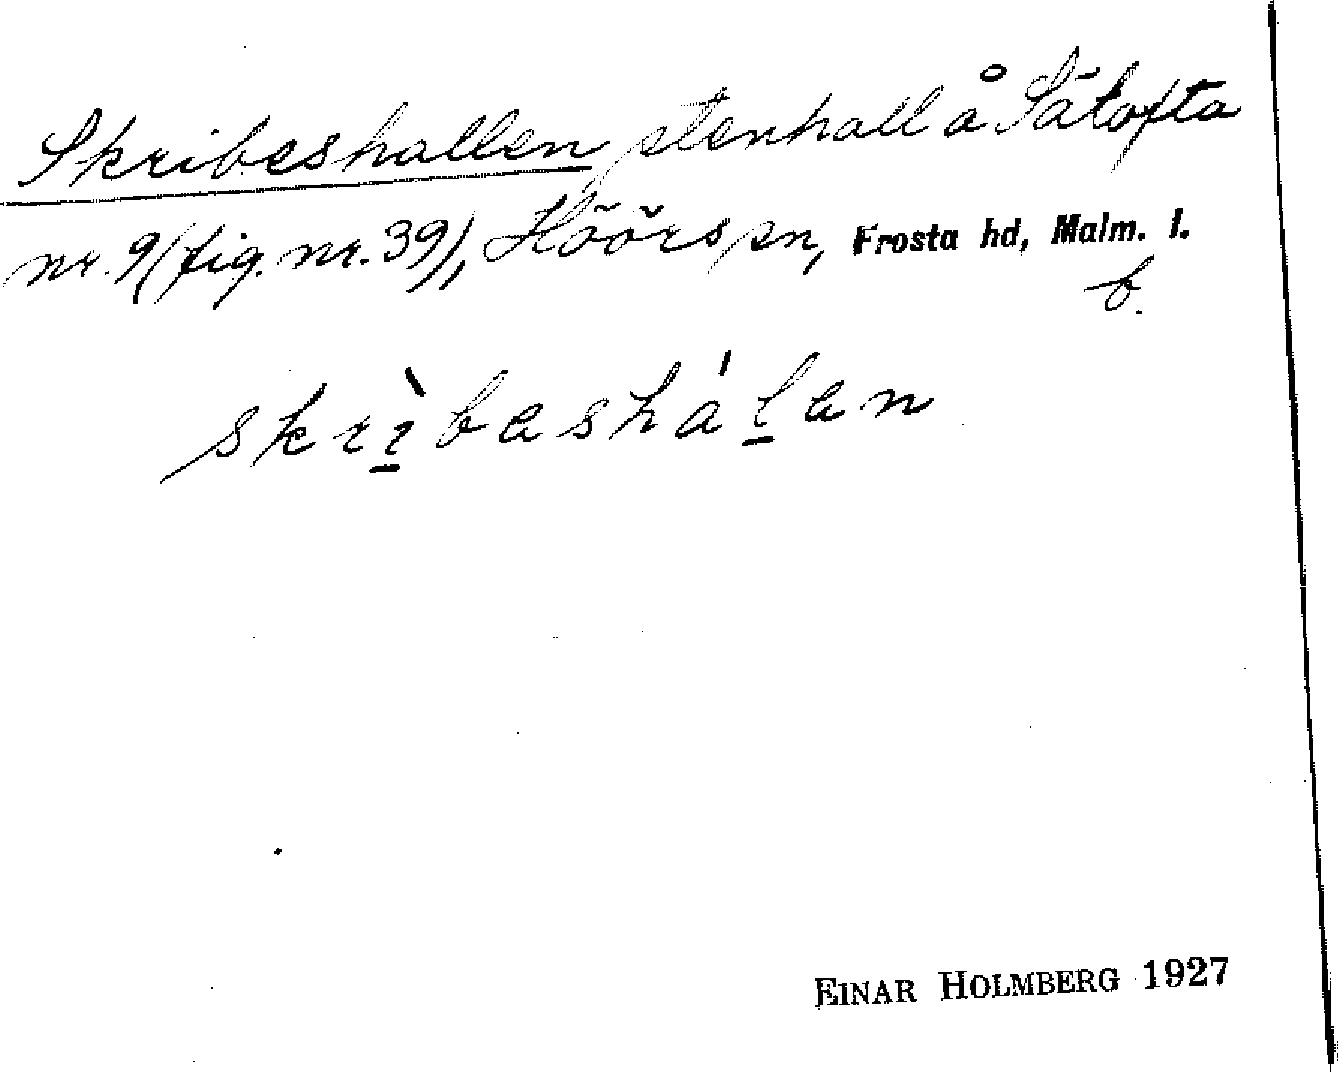 Skribeshallen stenhall å Sätofta
nr. 9 (fig. nr. 39), Höörs sn, Frosta hd, Malm. l.
b.
skrìbasháḻan
EINAR HOLMBERG 1927